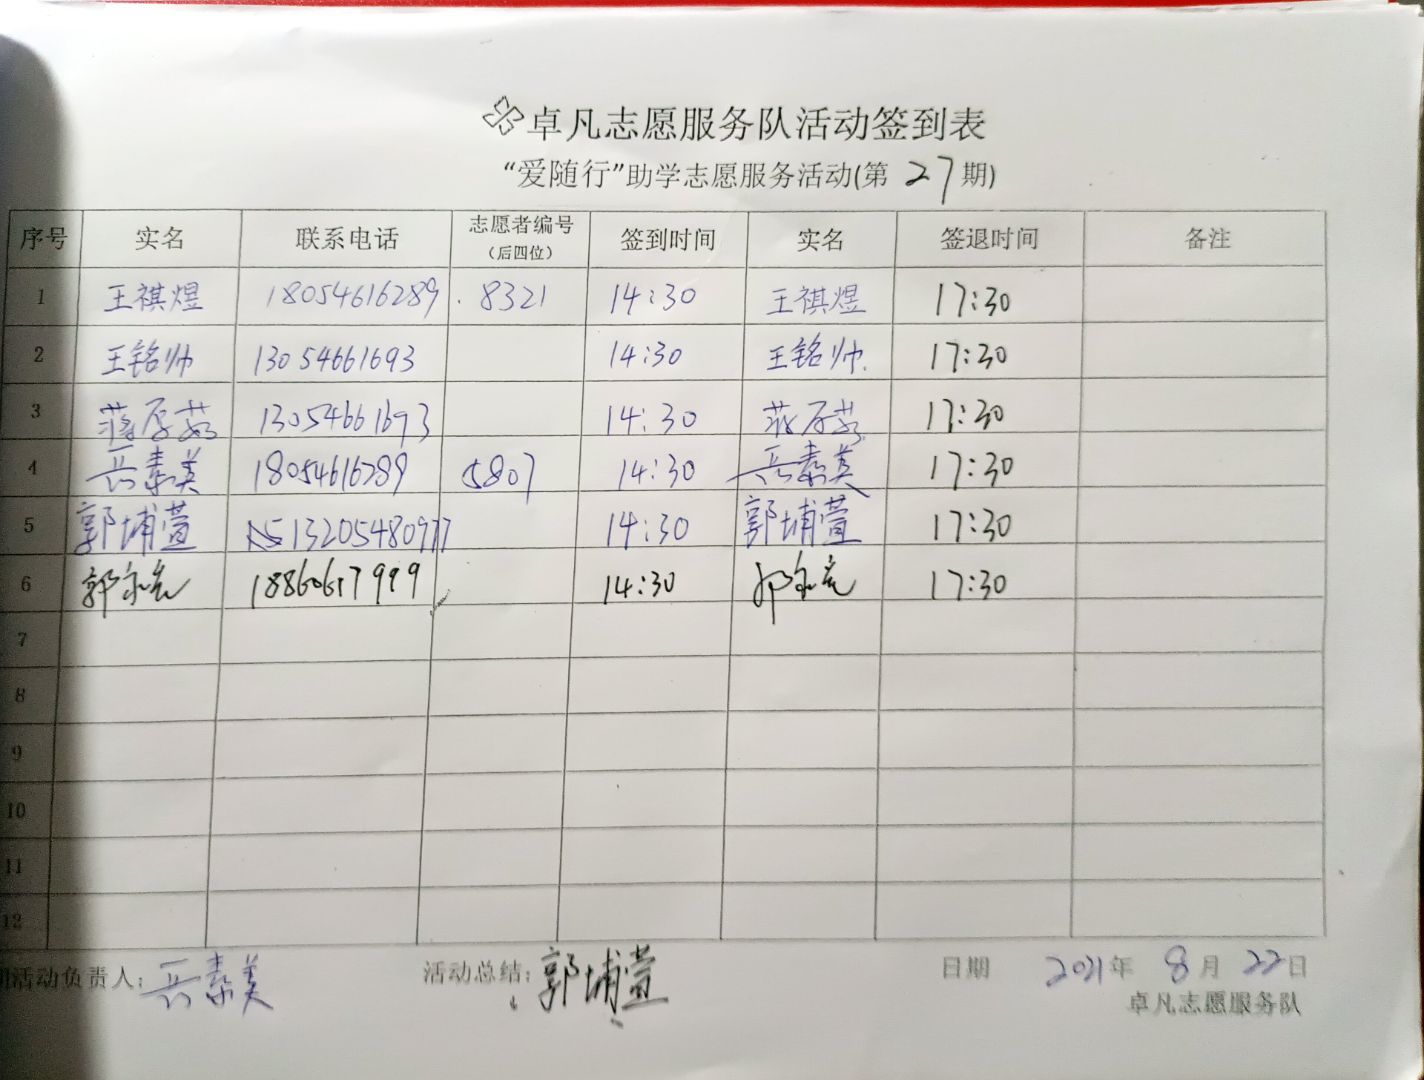 卓凡志愿服务队活动签到表
“爱随行”助学志愿服务活动(第 27 期)
序号 实名 联系电话 志愿者编号（后四位） 签到时间 实名 签退时间 备注
1 王祺煜 18054616289 8321 14:30 王祺煜 17:30
2 王铭帅 13054661693 14:30 王铭帅 17:30
3 蒋厚茹 13054661693 14:30 蒋厚茹 17:30
4 兵素美 18054616289 5807 14:30 兵素美 17:30
5 郭埔萱 13205480977 14:30 郭埔萱 17:30
6 郭 14:30 17:30
7
8
9
10
11
12
活动负责人: 兵素美 活动总结: 郭埔萱 日期 2021年 8月 22日
卓凡志愿服务队